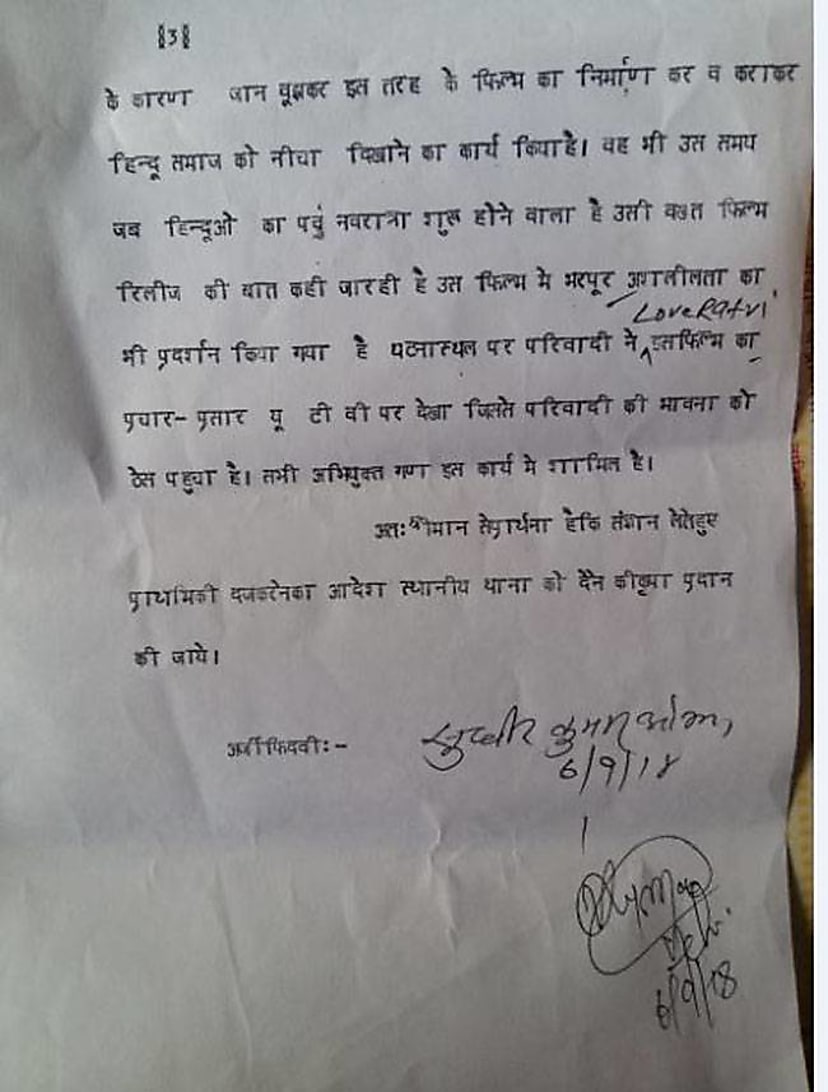 §3§
के कारण जान बूझकर इस तरह के फिल्म का निर्माण कर व कराकर
हिन्दू समाज को नीचा दिखाने का कार्य कियाहै। वह भी उस समय
जब हिन्दूओ का पर्व नवरात्रा शुरू होने वाला है उसी वक्त फिल्म
रिलीज की बात कही जारही है उस फिल्म मे भरपूर अशलीलता का
LoveRatri
भी प्रदर्शन किया गया है घटनास्थल पर परिवादी ने इसफिल्म का
प्रचार-प्रसार यू टी वी पर देखा जिससे परिवादी की भावना को
ठेस पहुचा है। सभी अभियुक्त गण इस कार्य मे शामिल है।
अतः श्रीमान सेप्रार्थना हैकि संज्ञान लेतेहुए
प्राथमिकी दजकरनेका आदेश स्थानीय थाना को देने कीकृपा प्रदान
की जाये।
अर्जीफिदवी:- सुधीर कुमार ओझा,
6/9/18
6/9/18